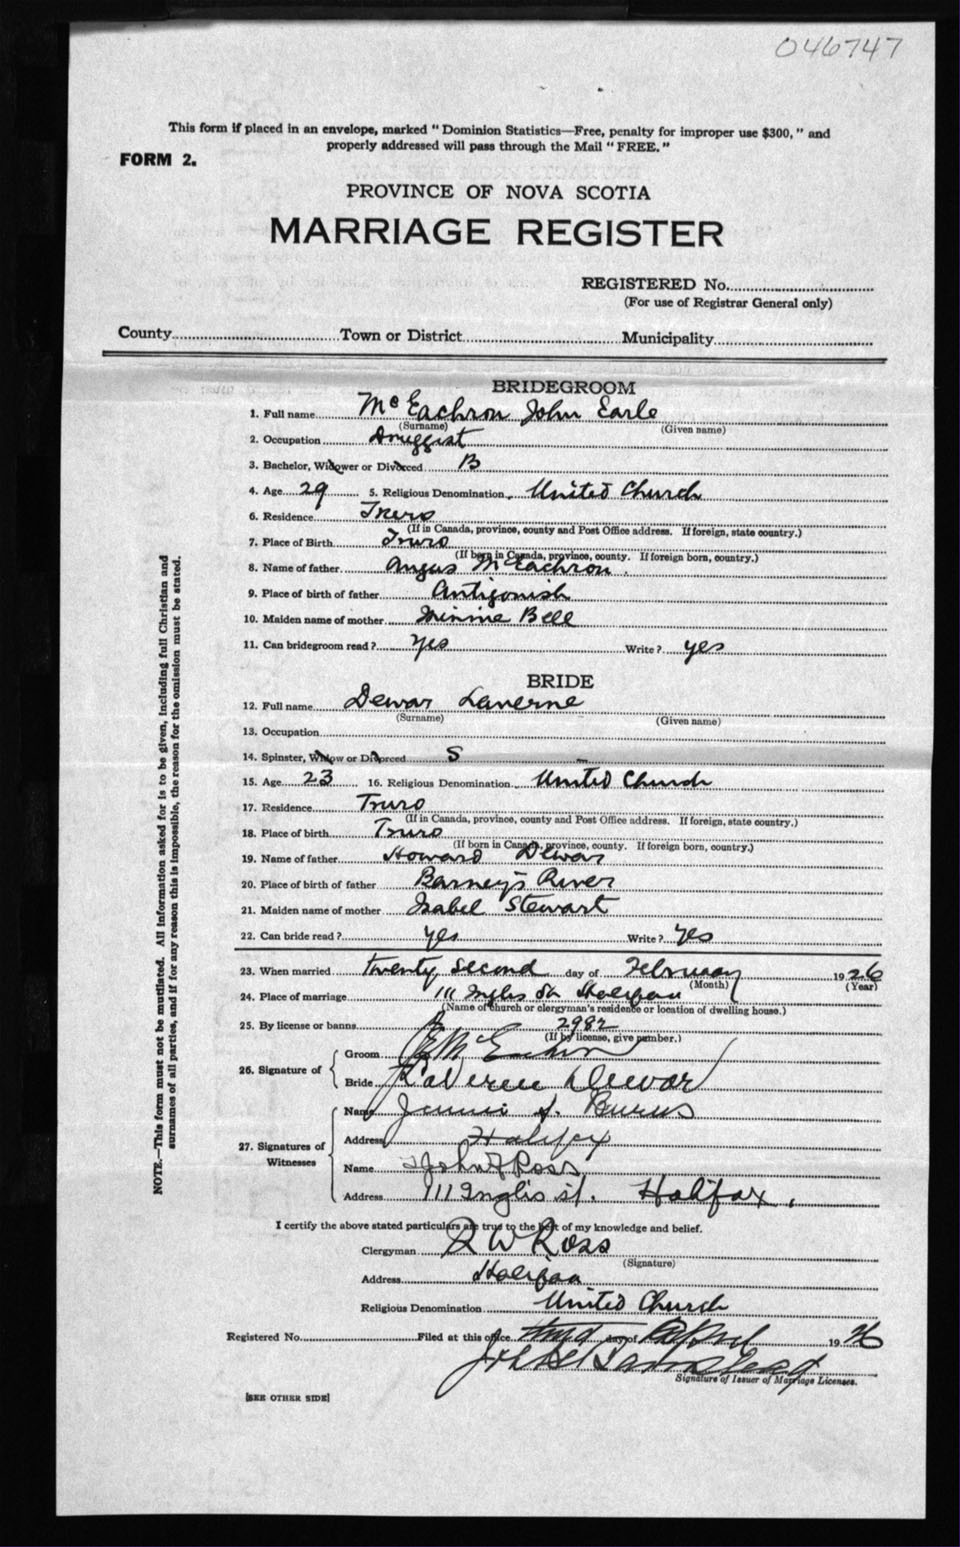 046747
This form if placed in an envelope, marked "Dominion Statistics—Free, penalty for improper use $300," and
properly addressed will pass through the Mail "FREE."
FORM 2.
PROVINCE OF NOVA SCOTIA
MARRIAGE REGISTER
REGISTERED No.
(For use of Registrar General only)
County Town or District Municipality
BRIDEGROOM
1. Full name McEachron John Earle
(Surname) (Given name)
2. Occupation Druggist
3. Bachelor, Widower or Divorced B
4. Age 29 5. Religious Denomination United Church
6. Residence Truro
(If in Canada, province, county and Post Office address. If foreign, state country.)
7. Place of Birth Truro
(If born in Canada, province, county. If foreign born, country.)
8. Name of father Angus McEachron
9. Place of birth of father Antigonish
10. Maiden name of mother Minnie Bell
11. Can bridegroom read? Yes Write? yes
BRIDE
12. Full name Dewar Laverne
(Surname) (Given name)
13. Occupation
14. Spinster, Widow or Divorced S
15. Age 23 16. Religious Denomination United Church
17. Residence Truro
(If in Canada, province, county and Post Office address. If foreign, state country.)
18. Place of birth Truro
(If born in Canada, province, county. If foreign born, country.)
19. Name of father Howard Dewar
20. Place of birth of father Barney's River
21. Maiden name of mother Isabel Stewart
22. Can bride read? yes Write? Yes
23. When married twenty second day of February 1926
(Month) (Year)
24. Place of marriage 111 Inglis St Halifax
(Name of church or clergyman's residence or location of dwelling house.)
25. By license or banns 2982
(If by license, give number.)
26. Signature of Groom McEachron
Bride LaVerne Dewar
27. Signatures of Witnesses Name Jennie J. Burns
Address Halifax
Name John F Ross
Address 111 Inglis st. Halifax.
I certify the above stated particulars are true to the best of my knowledge and belief.
Clergyman D W Ross
(Signature)
Address Halifax
Religious Denomination United Church
Registered No. Filed at this office day of April 1926
Signature of Issuer of Marriage Licenses.
[SEE OTHER SIDE]
NOTE.—This form must not be mutilated. All information asked for is to be given, including full Christian and
surnames of all parties, and if for any reason this is impossible, the reason for the omission must be stated.